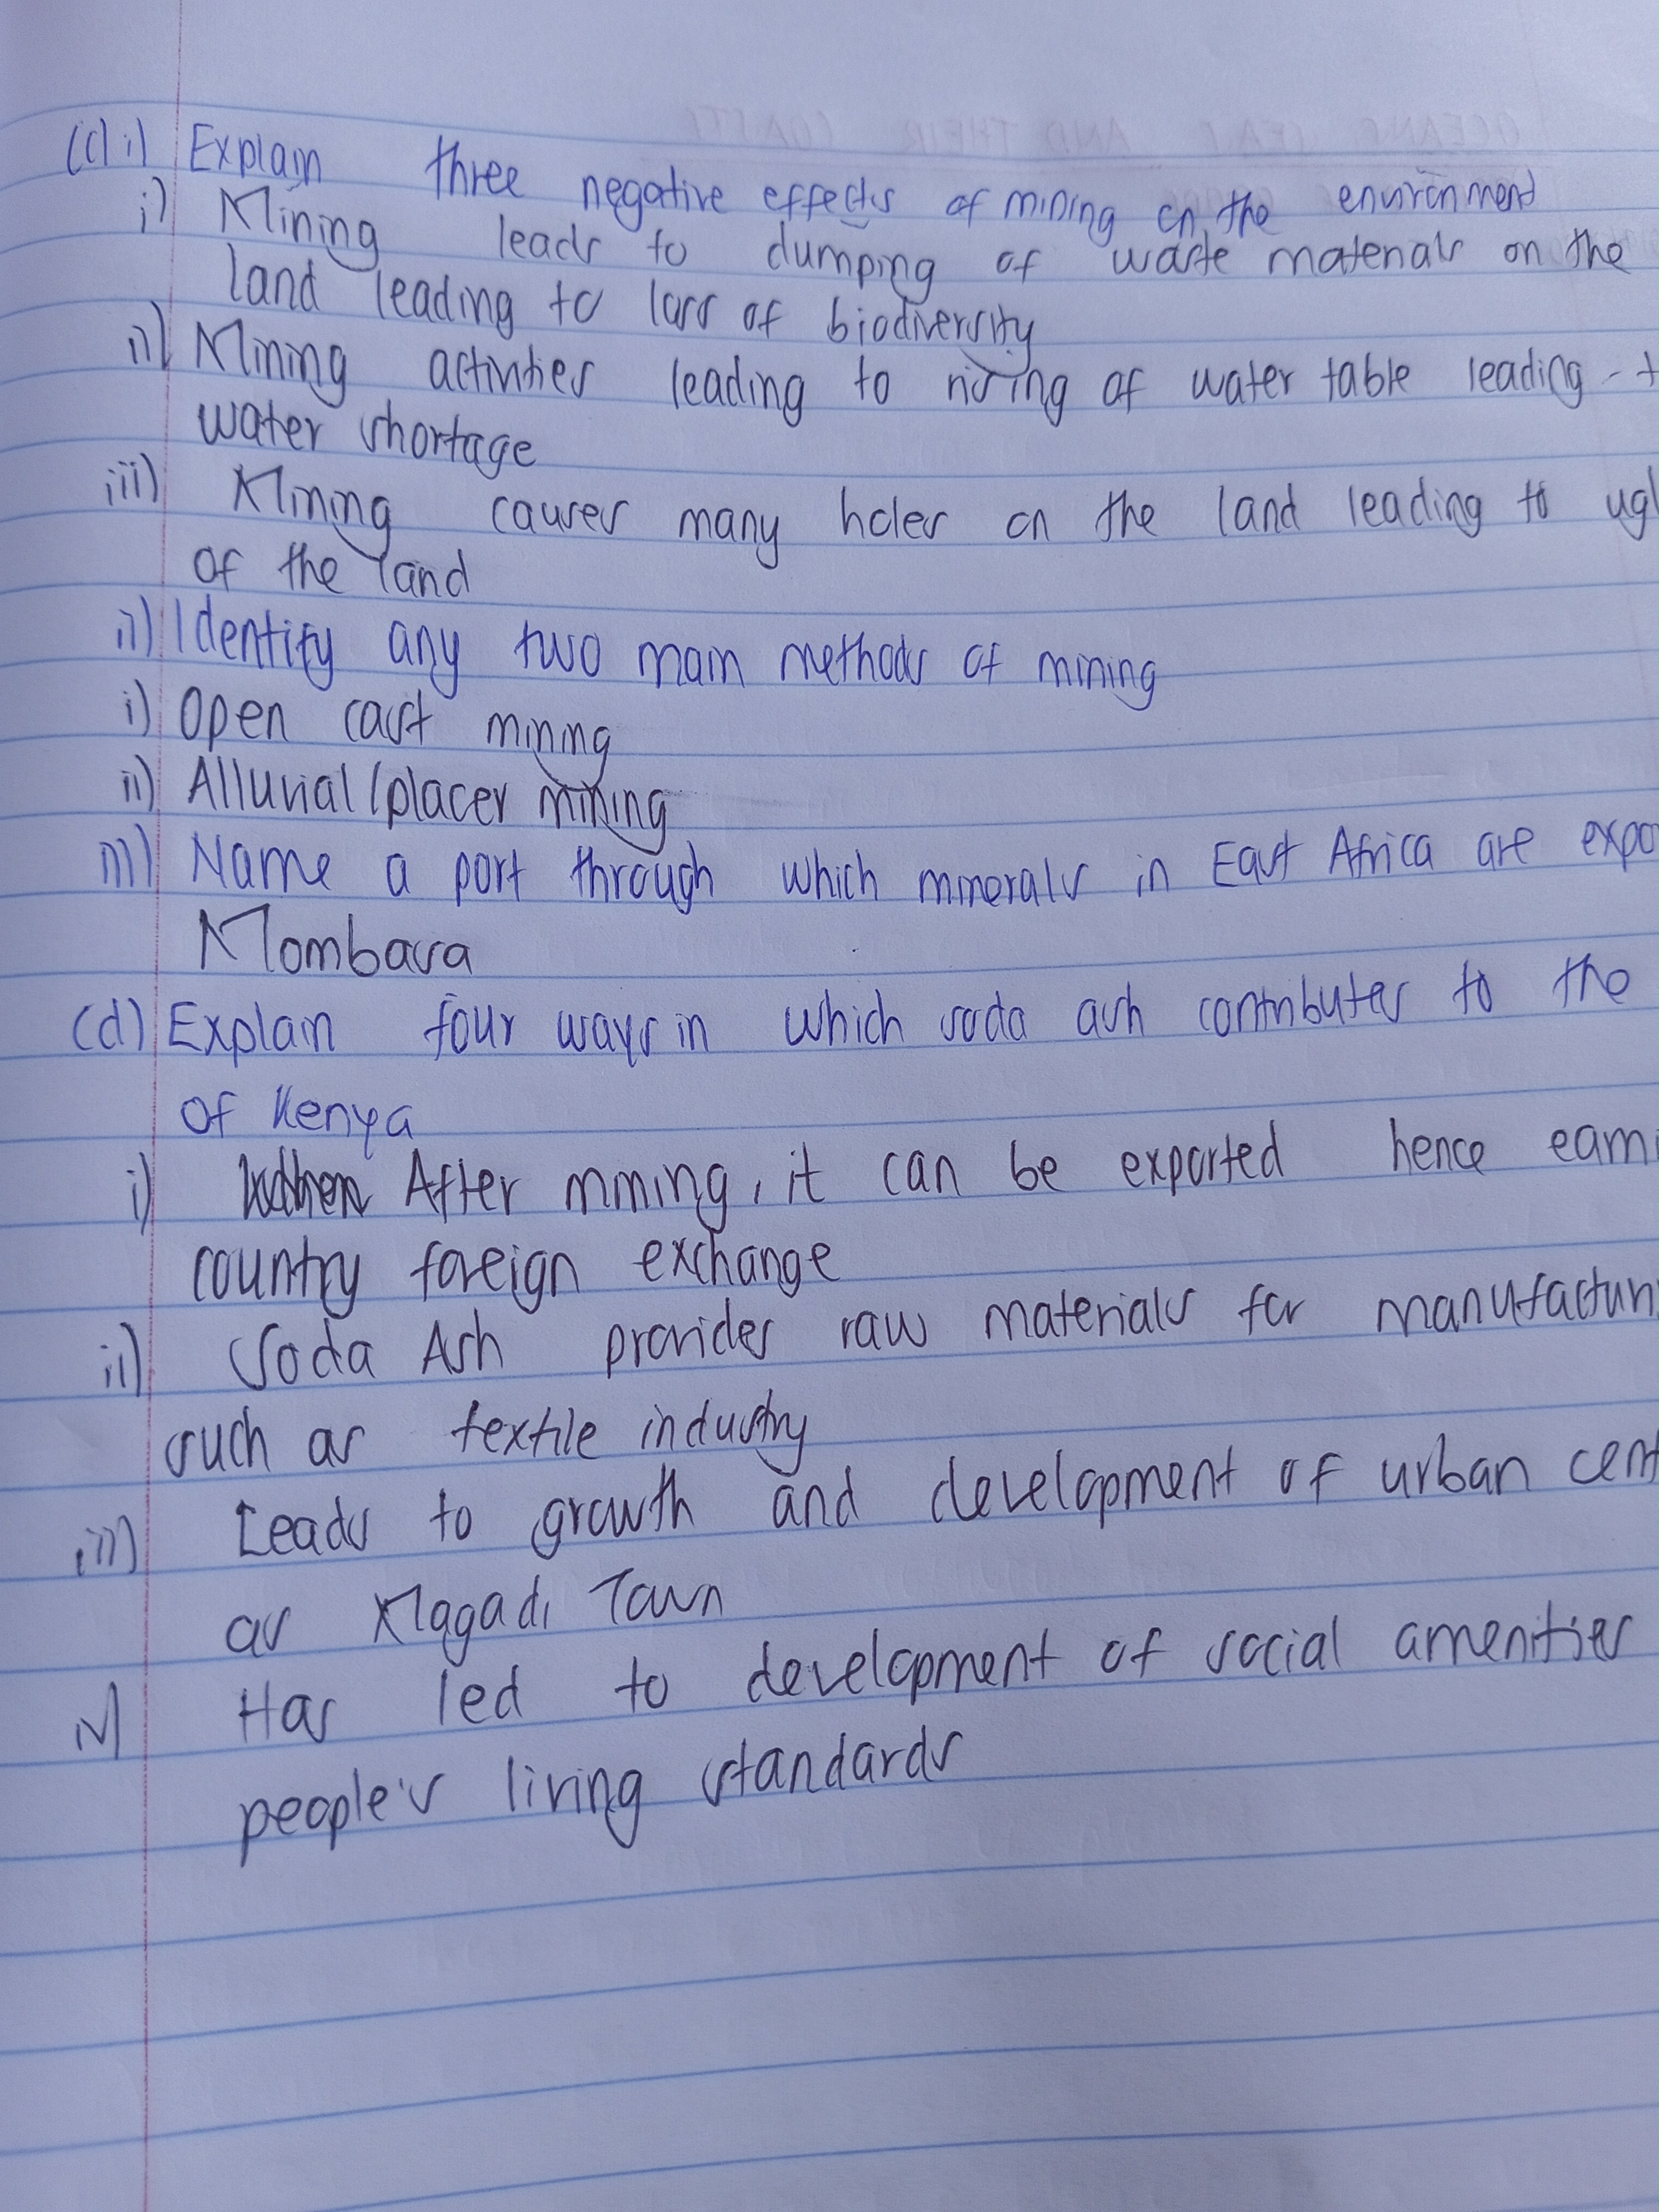 (c) i) Explain three negative effects of mining on the environment
i) Mining leads to dumping of waste materials on the
land leading to loss of biodiversity
ii) Mining activities leading to rising of water table leading
water shortage
iii) Mining causes many holes on the land leading to
of the land
ii) Identify any two main methods of mining
i) Open cast mining
ii) Alluvial/placer mining
iii) Name a port through which minerals in East Africa are
Mombasa
(d) Explain four ways in which soda ash contributes to the
of Kenya
i) After mining, it can be exported hence
country foreign exchange
ii) Soda Ash provides raw materials for
such as textile industry
iii) Leads to growth and development of urban
as Magadi Town
iv) Has led to development of social amenities
people's living standards